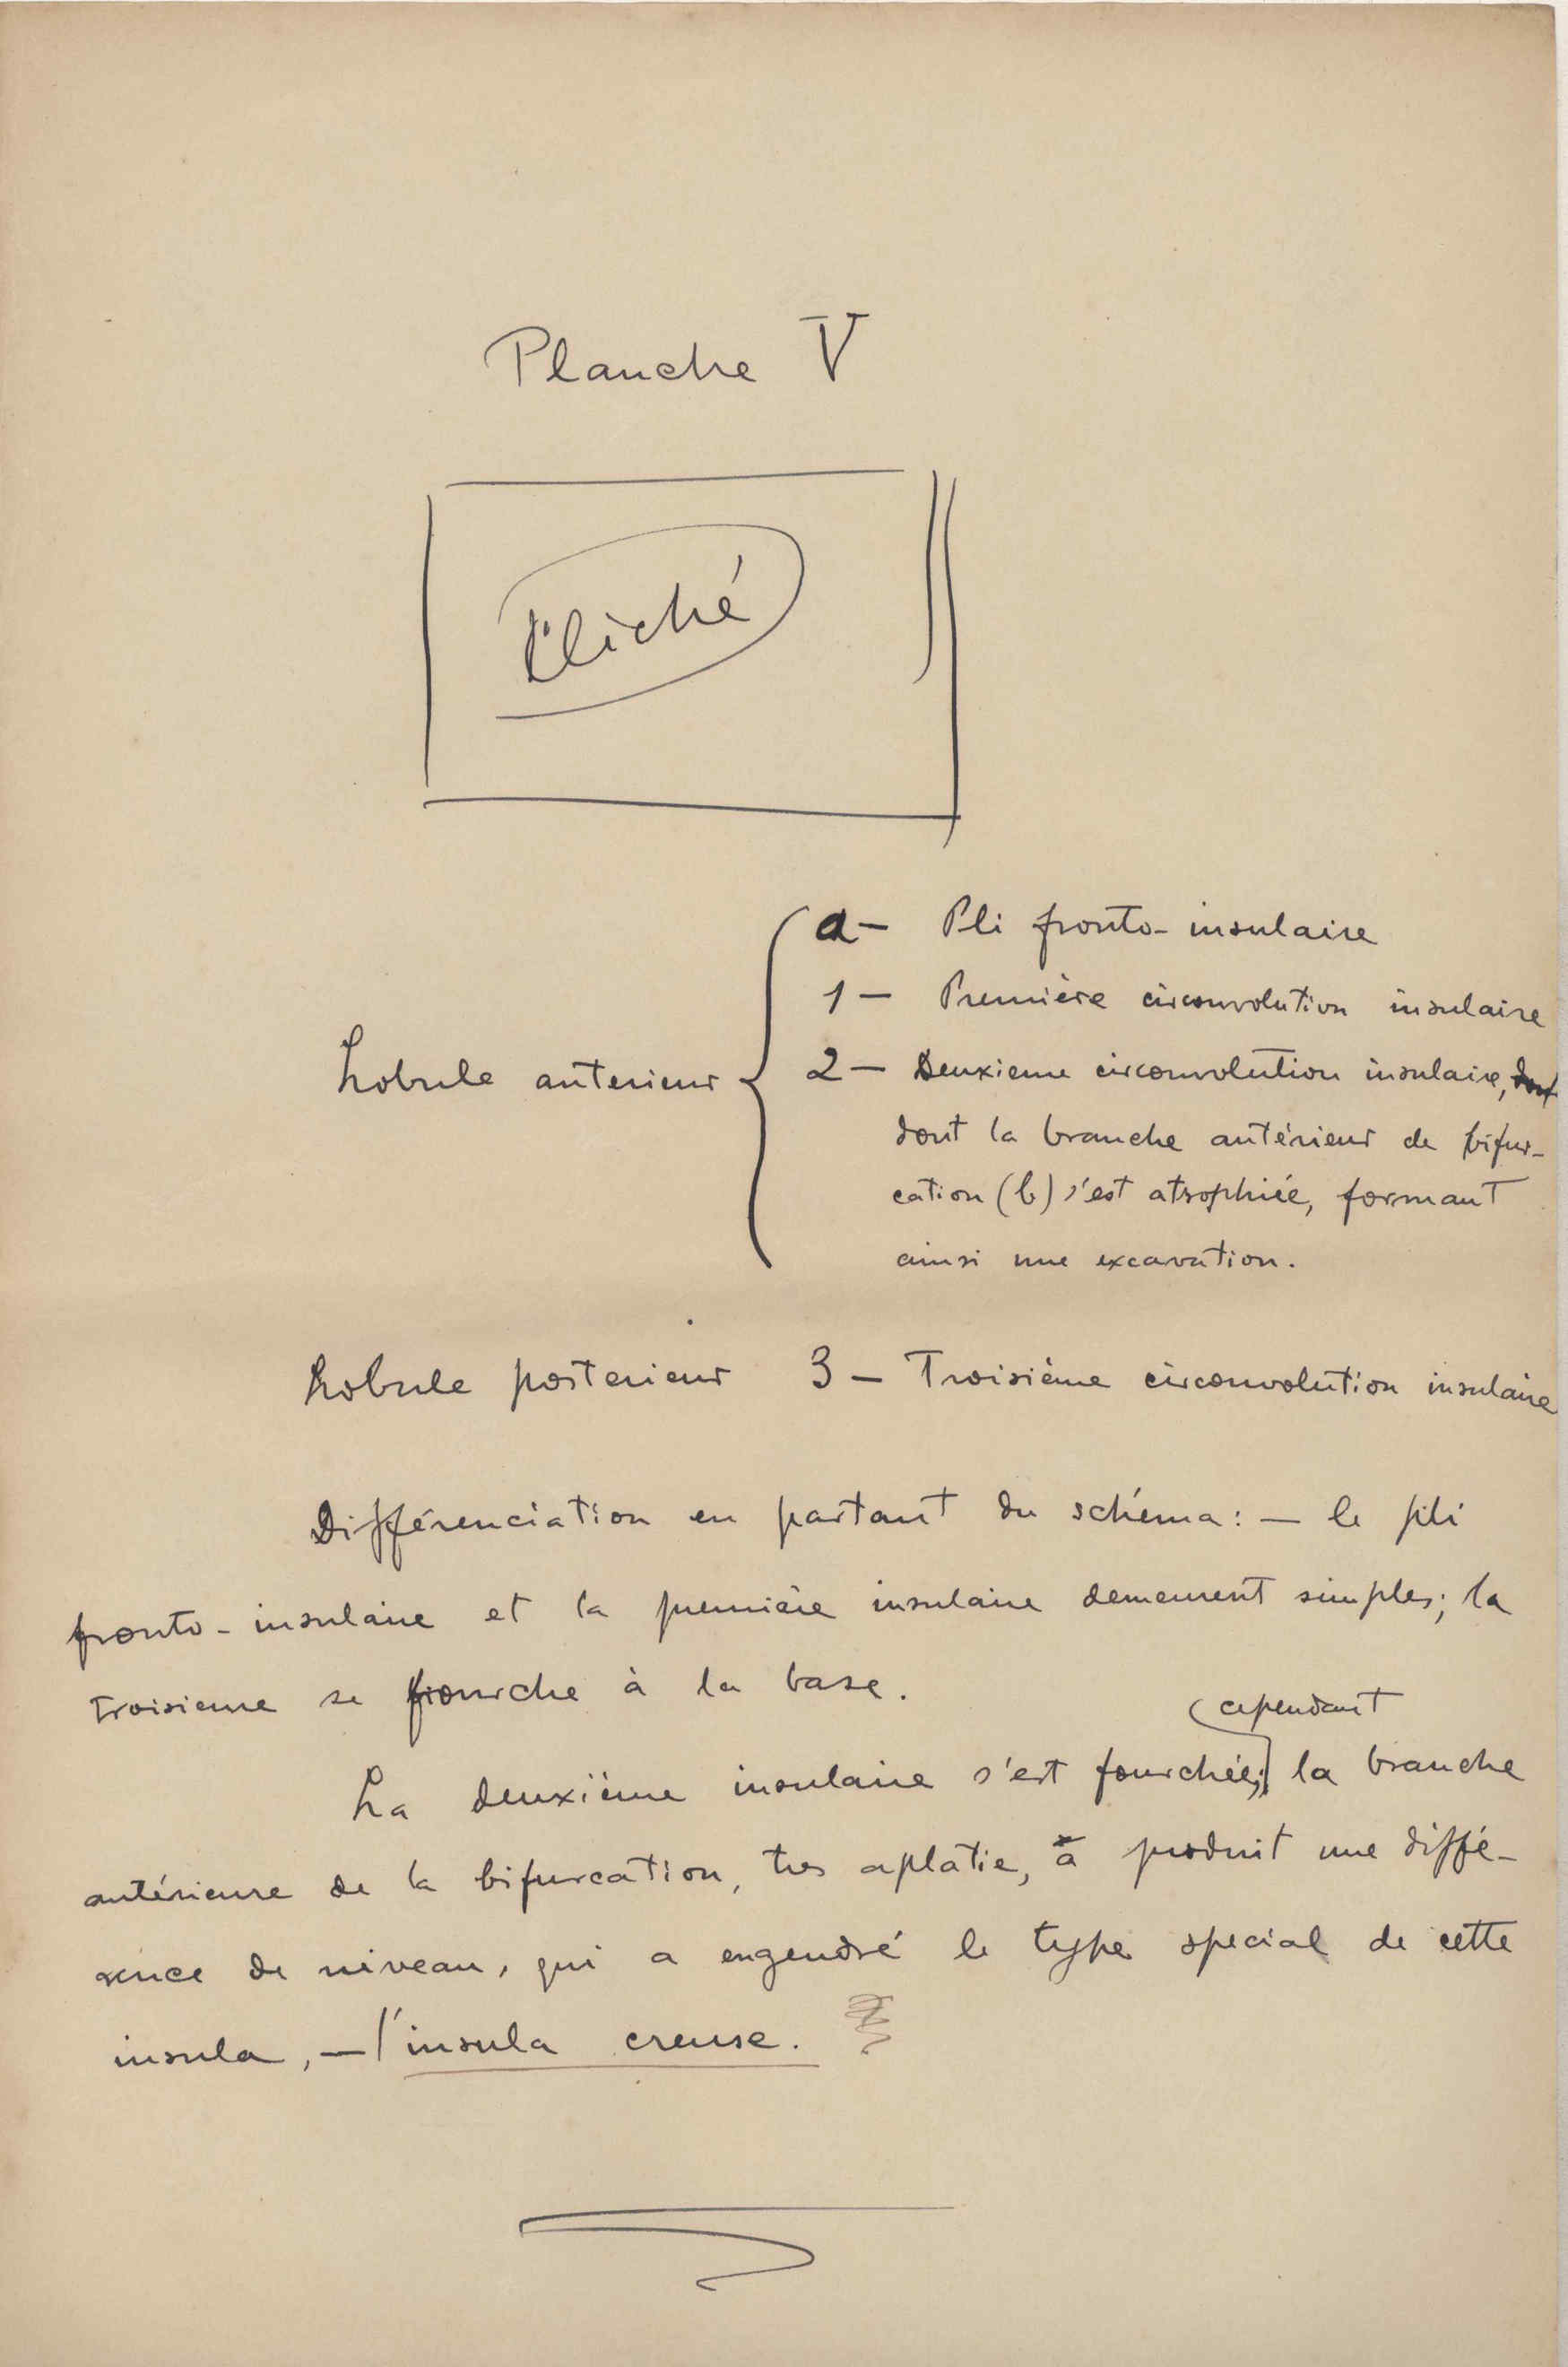 Planche V
Cliché
a — Pli fronto-insulaire
1 — Première circonvolution insulaire
Lobule anterieur
2 — Deuxieme circonvolution insulaire,
dont la branche antérieur de bifur-
cation (b) s'est atrophiée, formant
ainsi une excavation.
Lobule posterieur 3 — Troisième circonvolution insulaire
Différenciation en partant du schéma: — le pli
fronto-insulaire et la première insulaire demeurent simples; la
troisieme se fourche à la base.
cependant
La deuxième insulaire s'est fourchée; la branche
antérieure de la bifurcation, tres aplatie, a produit une diffé-
rence de niveau, qui a engendré le type special de cette
insula, — l'insula creuse.